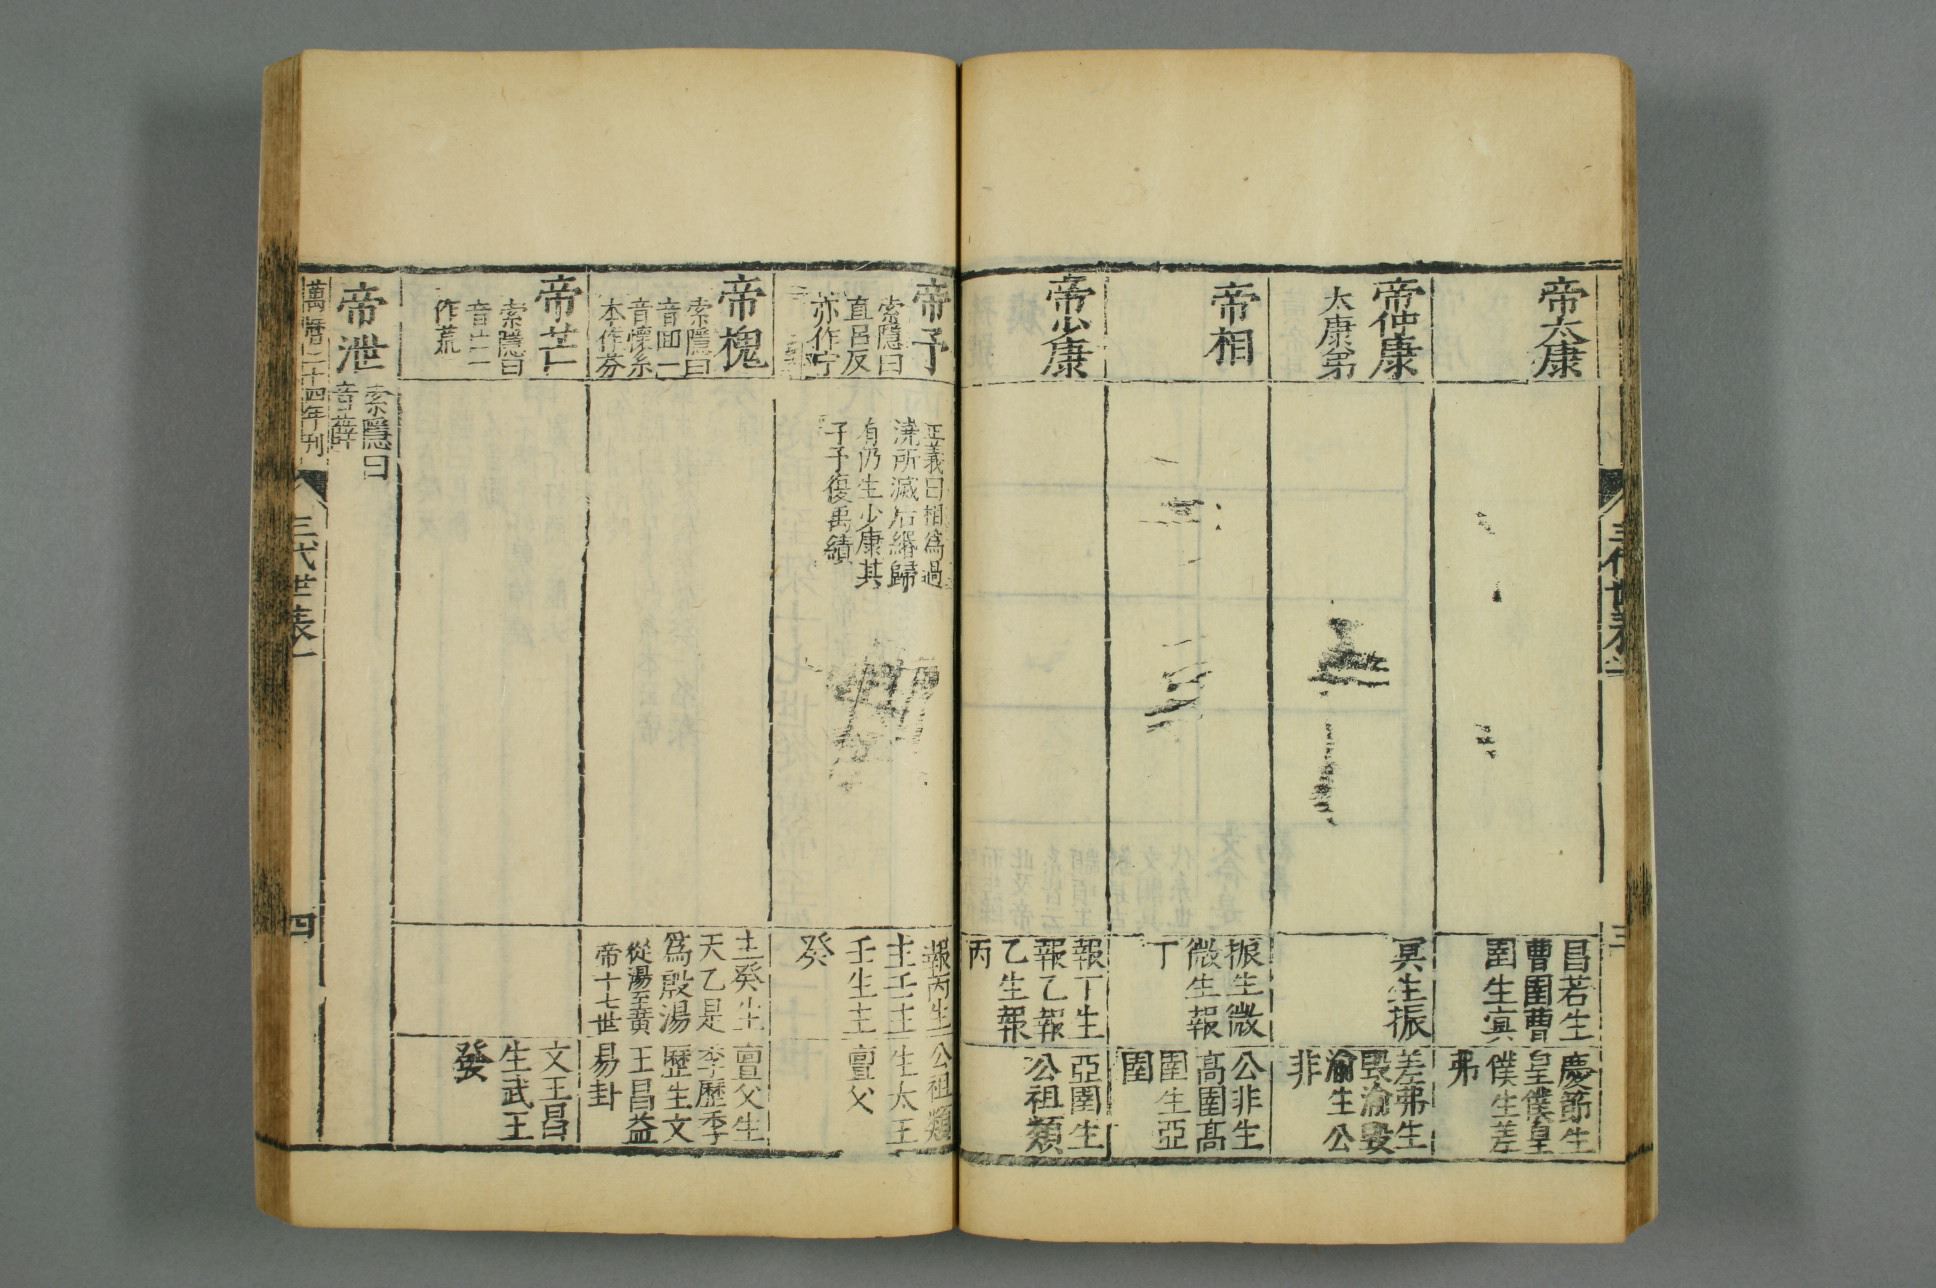 帝太康
昌若生
曹圉曹
圉生冥
慶節生
皇僕皇
僕生差
弗
帝仲康
太康弟
冥生振
差弗生
毀渝毀
渝生公
非
帝相
振生微
微生報
丁
公非生
高圉高
圉生亞
圉
帝少康
報丁生
報乙報
乙生報
丙
亞圉生
公祖類
帝予
索隱曰
直呂反
亦作宁
正義曰相為過
澆所滅后緡歸
有仍生少康其
子予復禹績
報丙生
主壬主
壬生主
癸
公祖類
生太王
亶父
帝槐
索隱曰
音回一
音懷系
本作芬
主癸生
天乙是
為殷湯
從湯至黃
帝十七世
亶父生
季歷季
歷生文
王昌益
易卦
帝芒
索隱曰
音亡一
作荒
文王昌
生武王
發
帝泄
索隱曰
音薛
萬曆二十四年刊
三代世表一
四